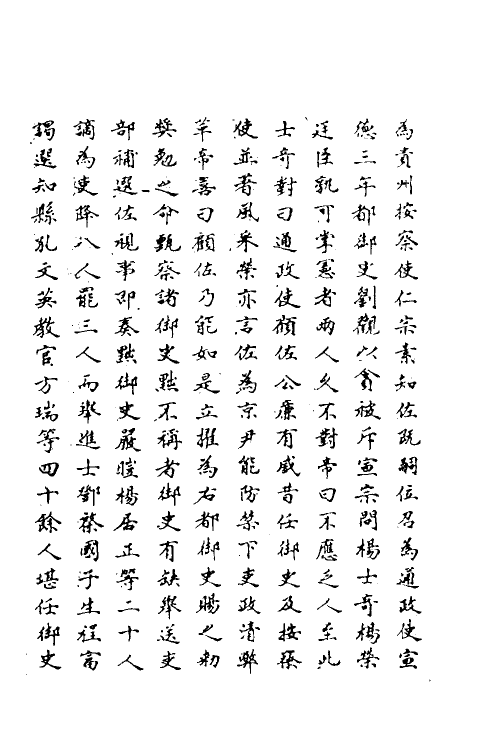 為貴州按察使仁宗素知佐既嗣位召為通政使宣
德三年都御史劉觀以貪被斥宣宗問楊士奇楊榮
廷臣孰可掌憲者兩人久不對帝曰不應乏人至此
士奇對曰通政使顧佐公廉有威昔任御史及按察
使並著風采榮亦言佐為京尹能防禁下吏政清弊
革帝喜曰顧佐乃能如是立擢為右都御史賜之勅
獎勉之命甄察諸御史黜不稱者御史有缺舉送吏
部補選佐視事即奏黜御史嚴暟楊居正等二十人
謫為吏降八人罷三人而舉進士鄧棨國子生程富
謁選知縣孔文英教官方瑞等四十餘人堪任御史